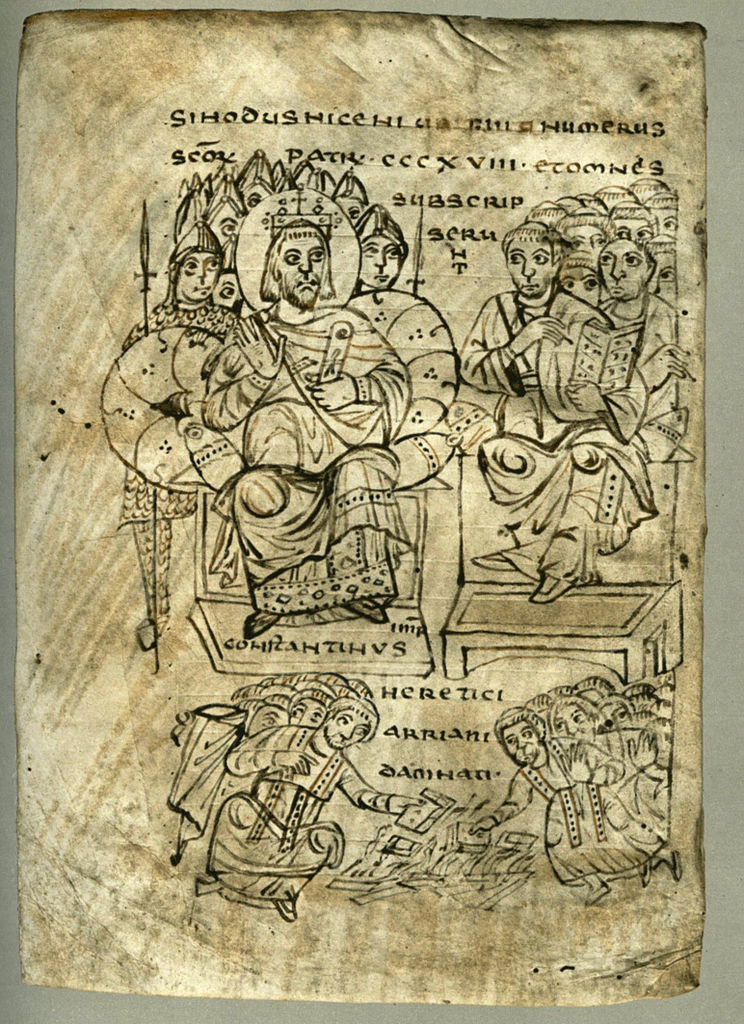 SINODUS NICENI NUMERUS
SCŌR PATR · CCCXVIII · ET OMNES
SUBSCRIP
SERU
NT
IMP̄
CONSTANTINUS
HERETICI
ARRIANI
DAMNATI ·